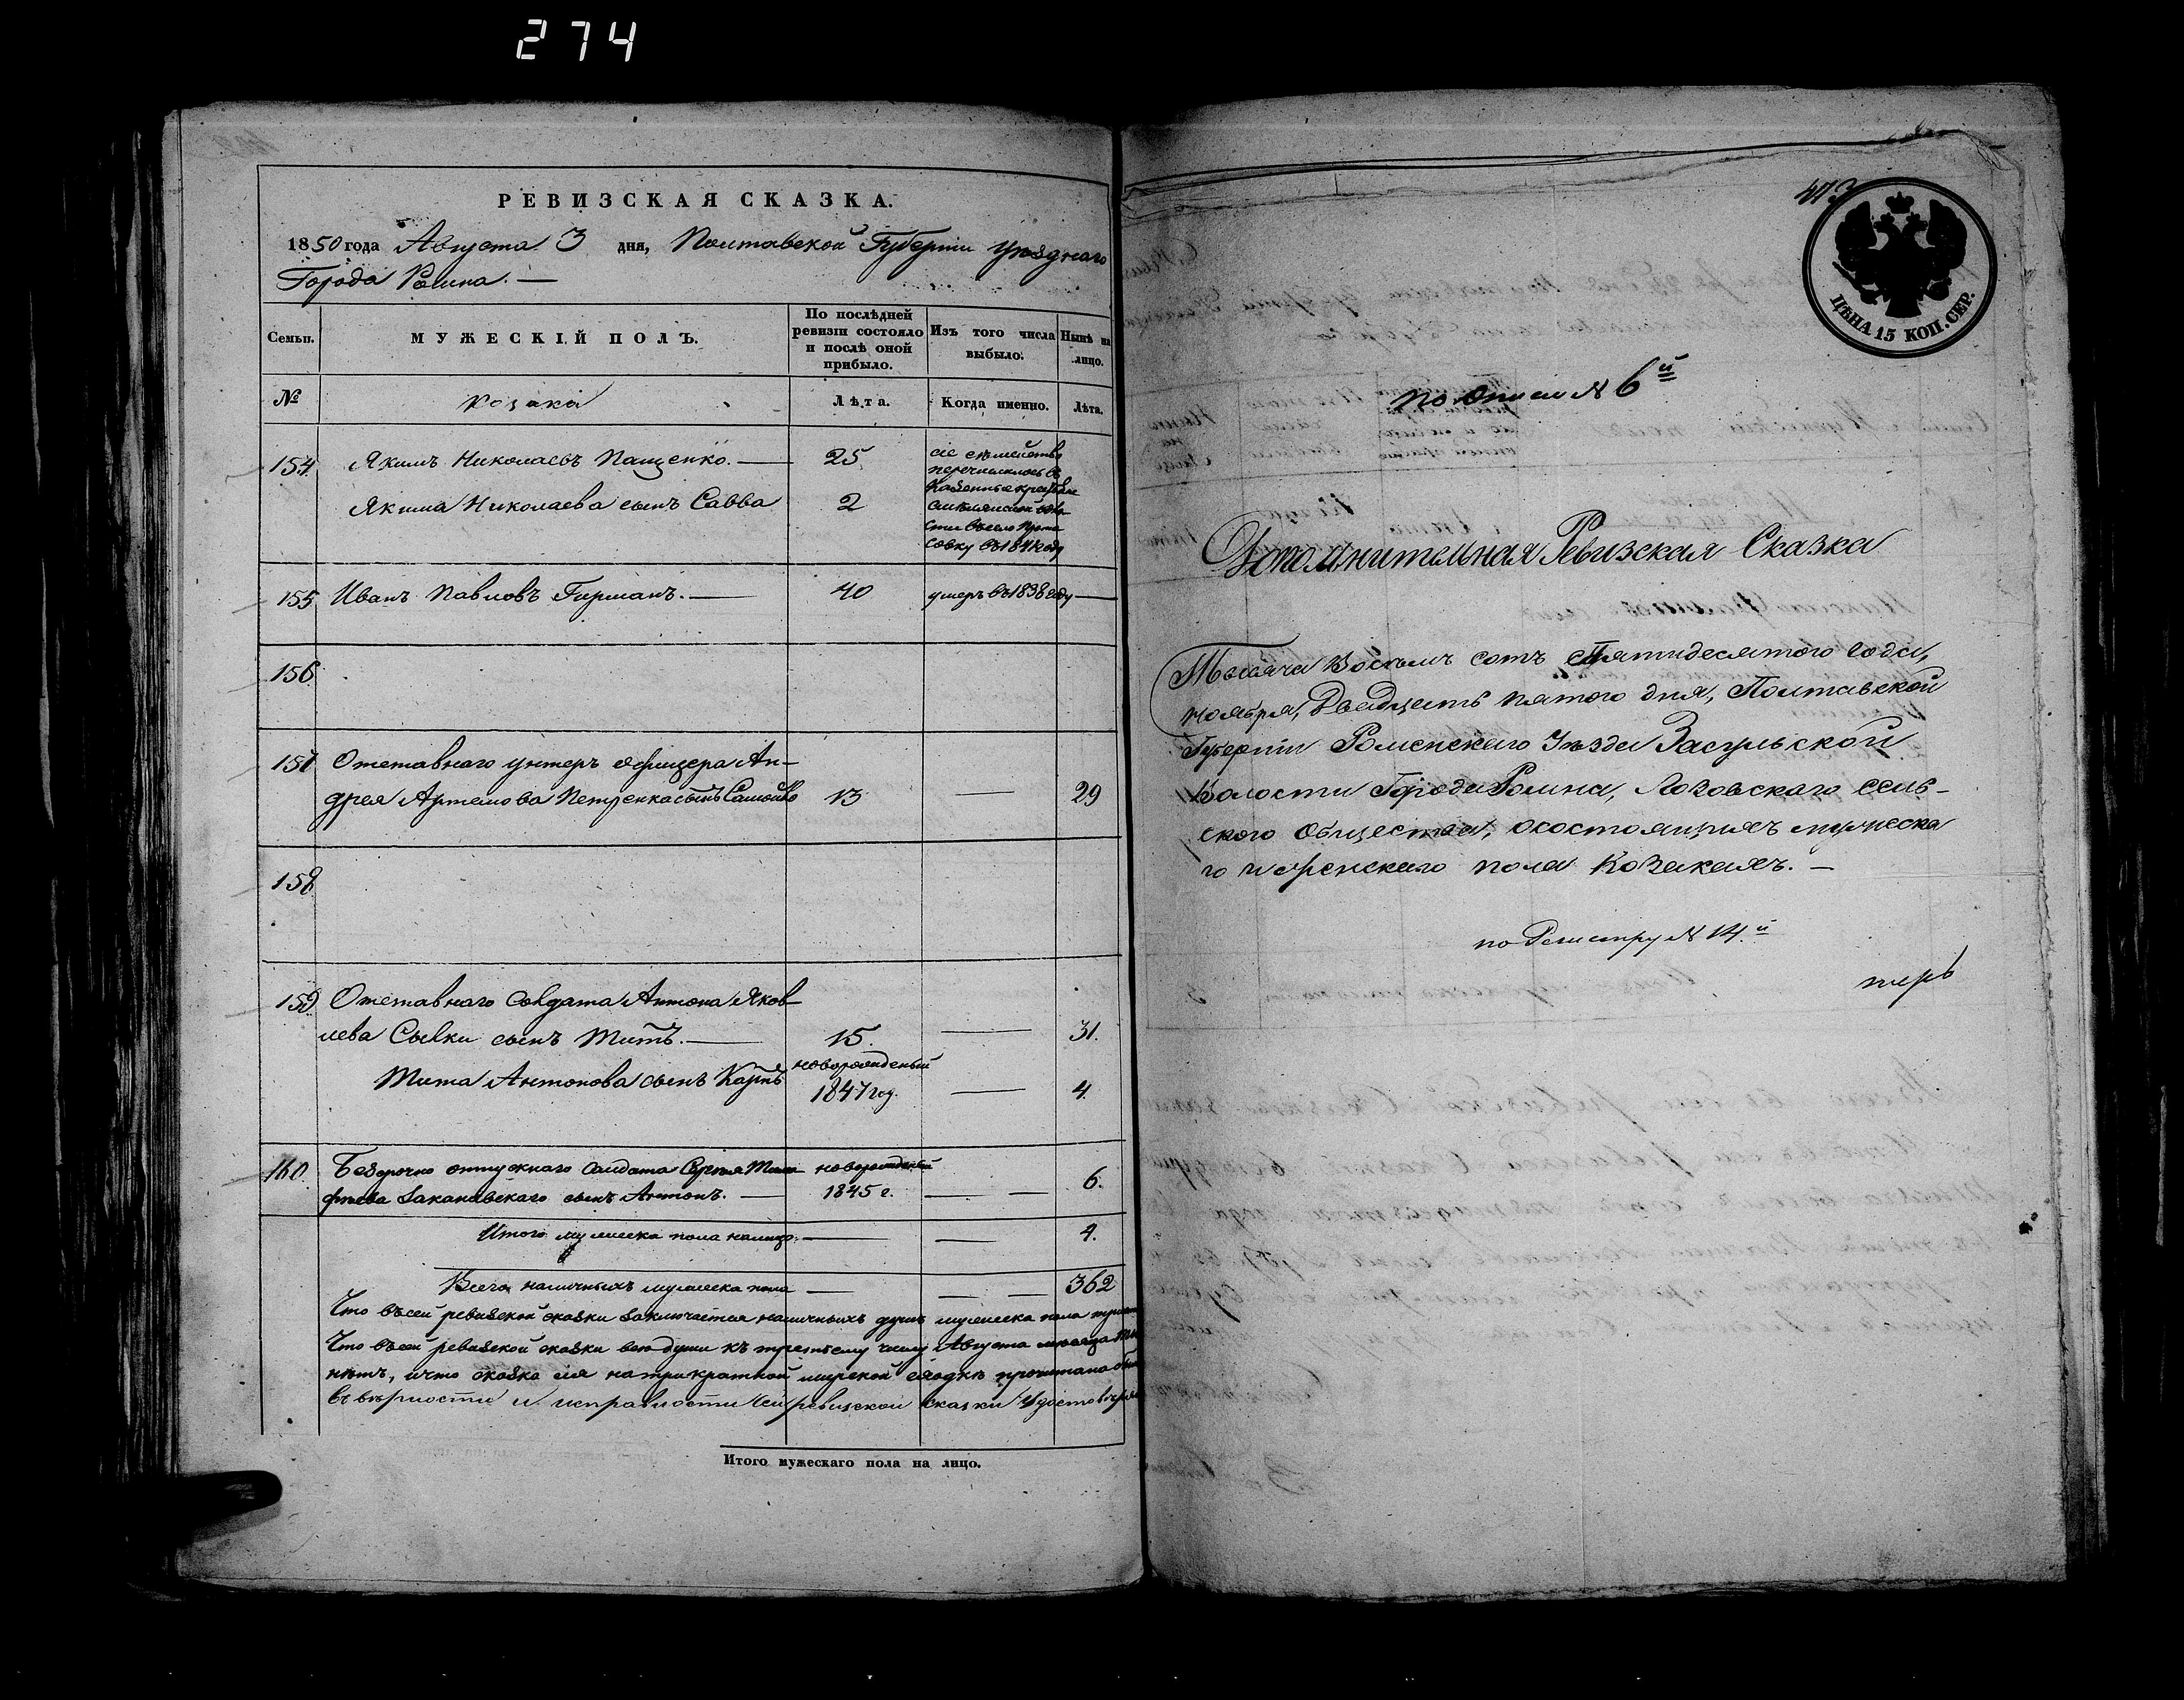 274
РЕВИЗСКАЯ СКАЗКА.
1850 года Августа 3 дня, Полтавской Губерніи уѣзднаго
Города Ромна. —
Семьи.
МУЖЕСКІЙ ПОЛЪ.
По послѣдней ревизіи состояло и послѣ оной прибыло.
Изъ того числа выбыло.
Нынѣ на лицо.
№
Козаки
Лѣта.
Когда именно.
Лѣта.
154 Якимъ Николаевъ Пащенко. — 25
сіе сѣмейство
перечислилось въ
Якима Николаева сынъ Савва 2
въ 1841 году
155 Иванъ Павловъ Гирманъ. — 40 умеръ въ 1838 году —
156
157 Отставнаго унтеръ офицера Ан-
дрея Артемова Петренка сынъ Самойло 13 — 29
158
159 Отставнаго Солдата Антона Яков
лева Сывки сынъ Титъ. — 15. — 31.
Тита Антонова сынъ Карпъ новорожденый 1847 год. — 4.
160 Безсрочно отпускнаго Салдата Сергея Тимо
фѣева Закапавскаго сынъ Антонъ. — новорожденый 1845 г. — — 6.
Итого мужеска пола налицо. — — 4.
Всего наличныхъ мужеска пола — — — 362
Что въ сей ревизской сказки заключается наличныхъ душъ мужеска пола
Что въ сей ревизской сказки всѣ души къ третьему числу Августа мѣсяца
нѣтъ, и что сказка сія на трикратной мирской сходкѣ прочитана
въ вѣрности и исправности сей ревизской сказки
Итого мужескаго пола на лицо.
473
ЦѢНА 15 КОП. СЕР.
по Описи № 6й
Дополнительная Ревизская Сказка
Тысяча восемь сотъ Пятидесятого года,
ноября, Двадцать пятого дня, Полтавской
Губерніи Роменскаго Уѣзда Засульской
Волости Города Ромна, Лозовскаго Сель-
ского Общества, о состоящихъ мужеска
го и женскаго пола Козакахъ. —
по Регистру № 14.й